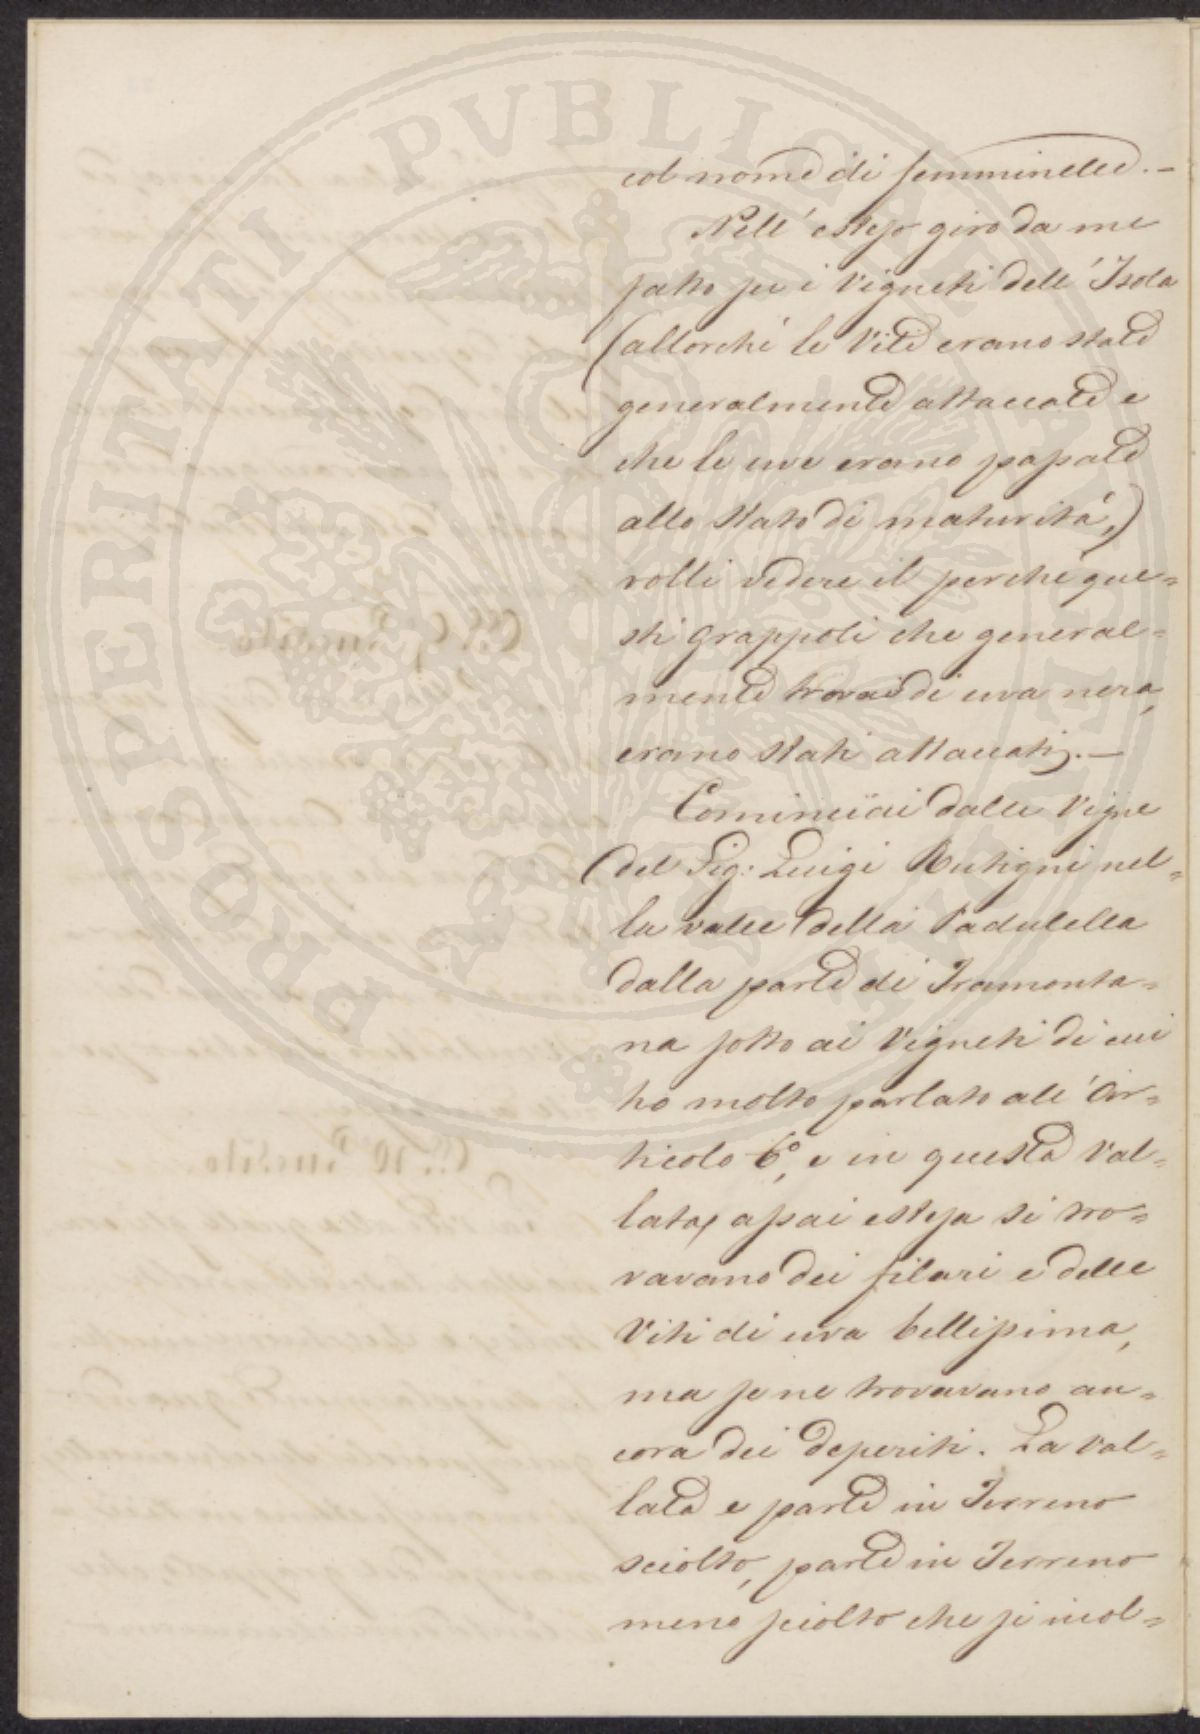 col nome di femminelle. —
Nell' esteso giro da me
fatto per i Vigneti dell' Isola
(allorchè le Vite erano state
generalmente attaccate e
che le uve erano passate
allo stato di maturità,)
volli vedere il perchè que=
sti grappoli che general=
mente trovai di uva nera,
erano stati attaccati. —
Cominciai dalle Vigne
del Sig: Luigi Butigni nel=
la valle della Padulella
dalla parte di Tramonta=
na sotto ai Vigneti di cui
ho molto parlato all' Ar=
ticolo 6°, e in questa Val=
lata, assai estesa si tro=
vavano dei filari e delle
Viti di uva bellissima,
ma se ne trovavano an=
cora dei deperiti. La Val=
lata e parte in Terreno
sciolto, parte in Terreno
meno sciolto che si incol=
PROSPERITATI PVBLICAE